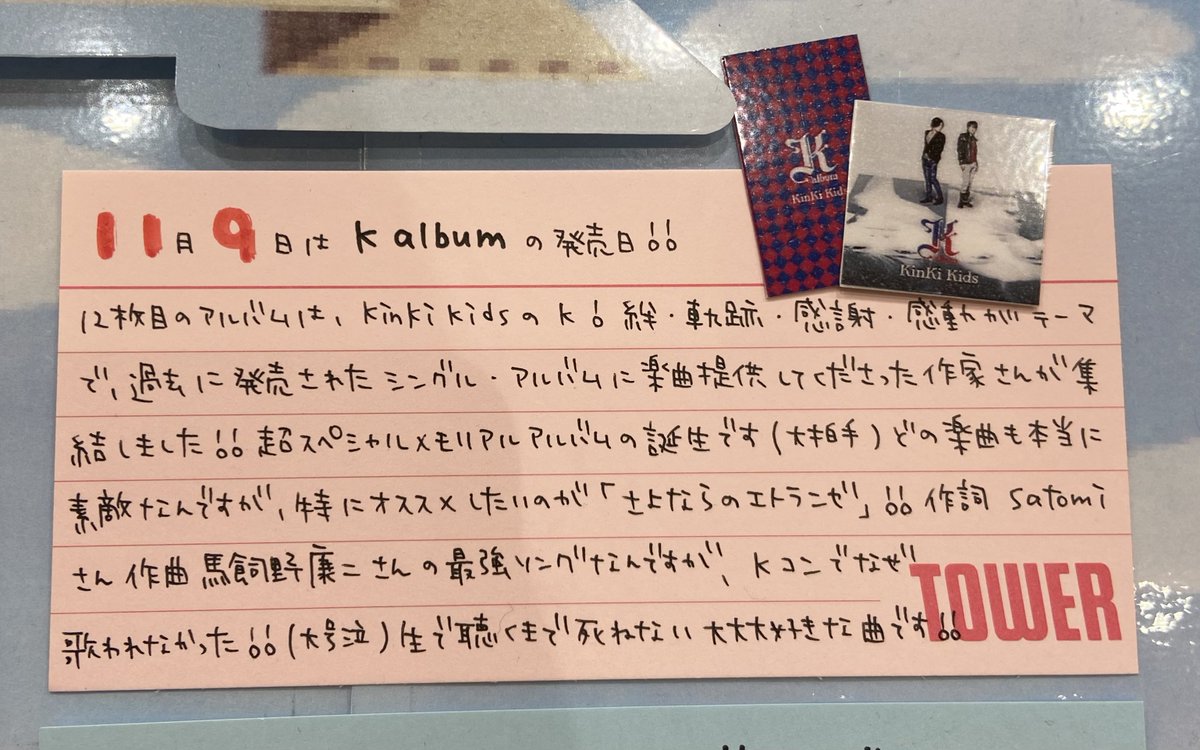 K
album
KinKi Kids
K
KinKi Kids
11月9日は K albumの発売日!!
12枚目のアルバムは、KinKi KidsのK!絆・軌跡・感謝・感動がテーマ
で、過去に発売されたシングル・アルバムに楽曲提供してくださった作家さんが集
結しました!!超スペシャルメモリアルアルバムの誕生です(大拍手)どの楽曲も本当に
素敵なんですが、特にオススメしたいのが「さよならのエトランゼ」!!作詞 satomi
さん 作曲 馬飼野康二さんの最強ソングなんですが、Kコンでなぜ
歌われなかった!!(大号泣)生で聴くまで死ねない大大大好きな曲です!!
TOWER